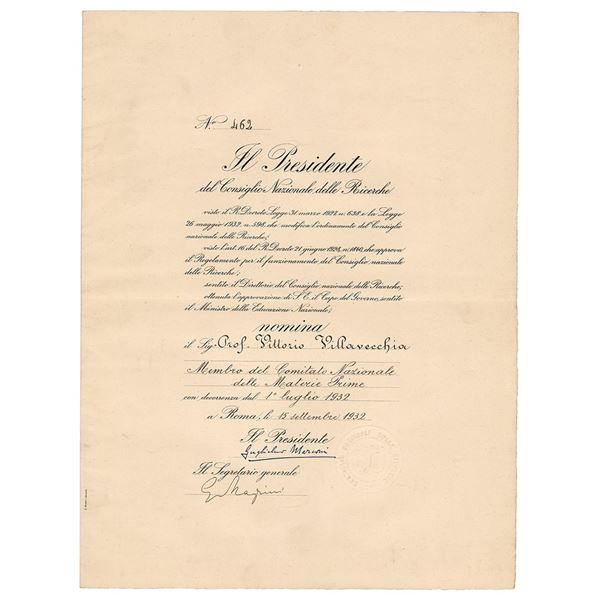 N.º 462
Il Presidente
del Consiglio Nazionale delle Ricerche
visto il R. Decreto Legge 31 marzo 1927, n. 638 e la Legge
26 maggio 1932, n. 598, che modifica l'ordinamento del Consiglio
nazionale delle Ricerche;
visto l'art. 16 del R. Decreto 21 giugno 1928, n. 1840, che approva
il Regolamento per il funzionamento del Consiglio nazionale
delle Ricerche;
sentito il Direttorio del Consiglio nazionale delle Ricerche;
ottenuta l'approvazione di S. E. il Capo del Governo, sentito
il Ministro della Educazione Nazionale;
nomina
il Sig. Prof. Vittorio Villavecchia
Membro del Comitato Nazionale
delle Materie Prime
con decorrenza dal 1º luglio 1932
a Roma, li 15 settembre 1932
Il Presidente
Guglielmo Marconi
Il Segretario generale
G. Magrini